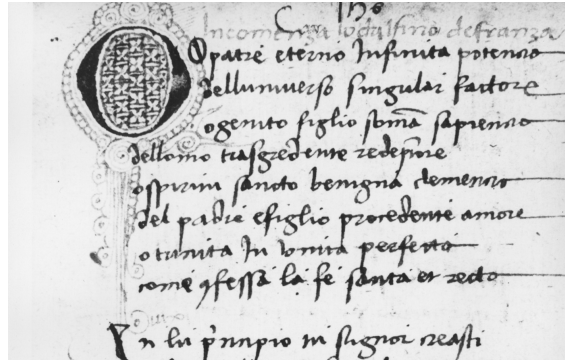 yhs
Incomenza lo dalfino de franza
O patre eterno Infinita potencia
delluniuerso singular factore
o genito figlio soma sapiencia
dellomo trasgredente redeptore
o spiritu sancto benigna clemencia
del padre e figlio procedente amore
o trinita In vnita perfecta
come ꝯfessa la fe santa et recta
In lu principio tu signor creasti